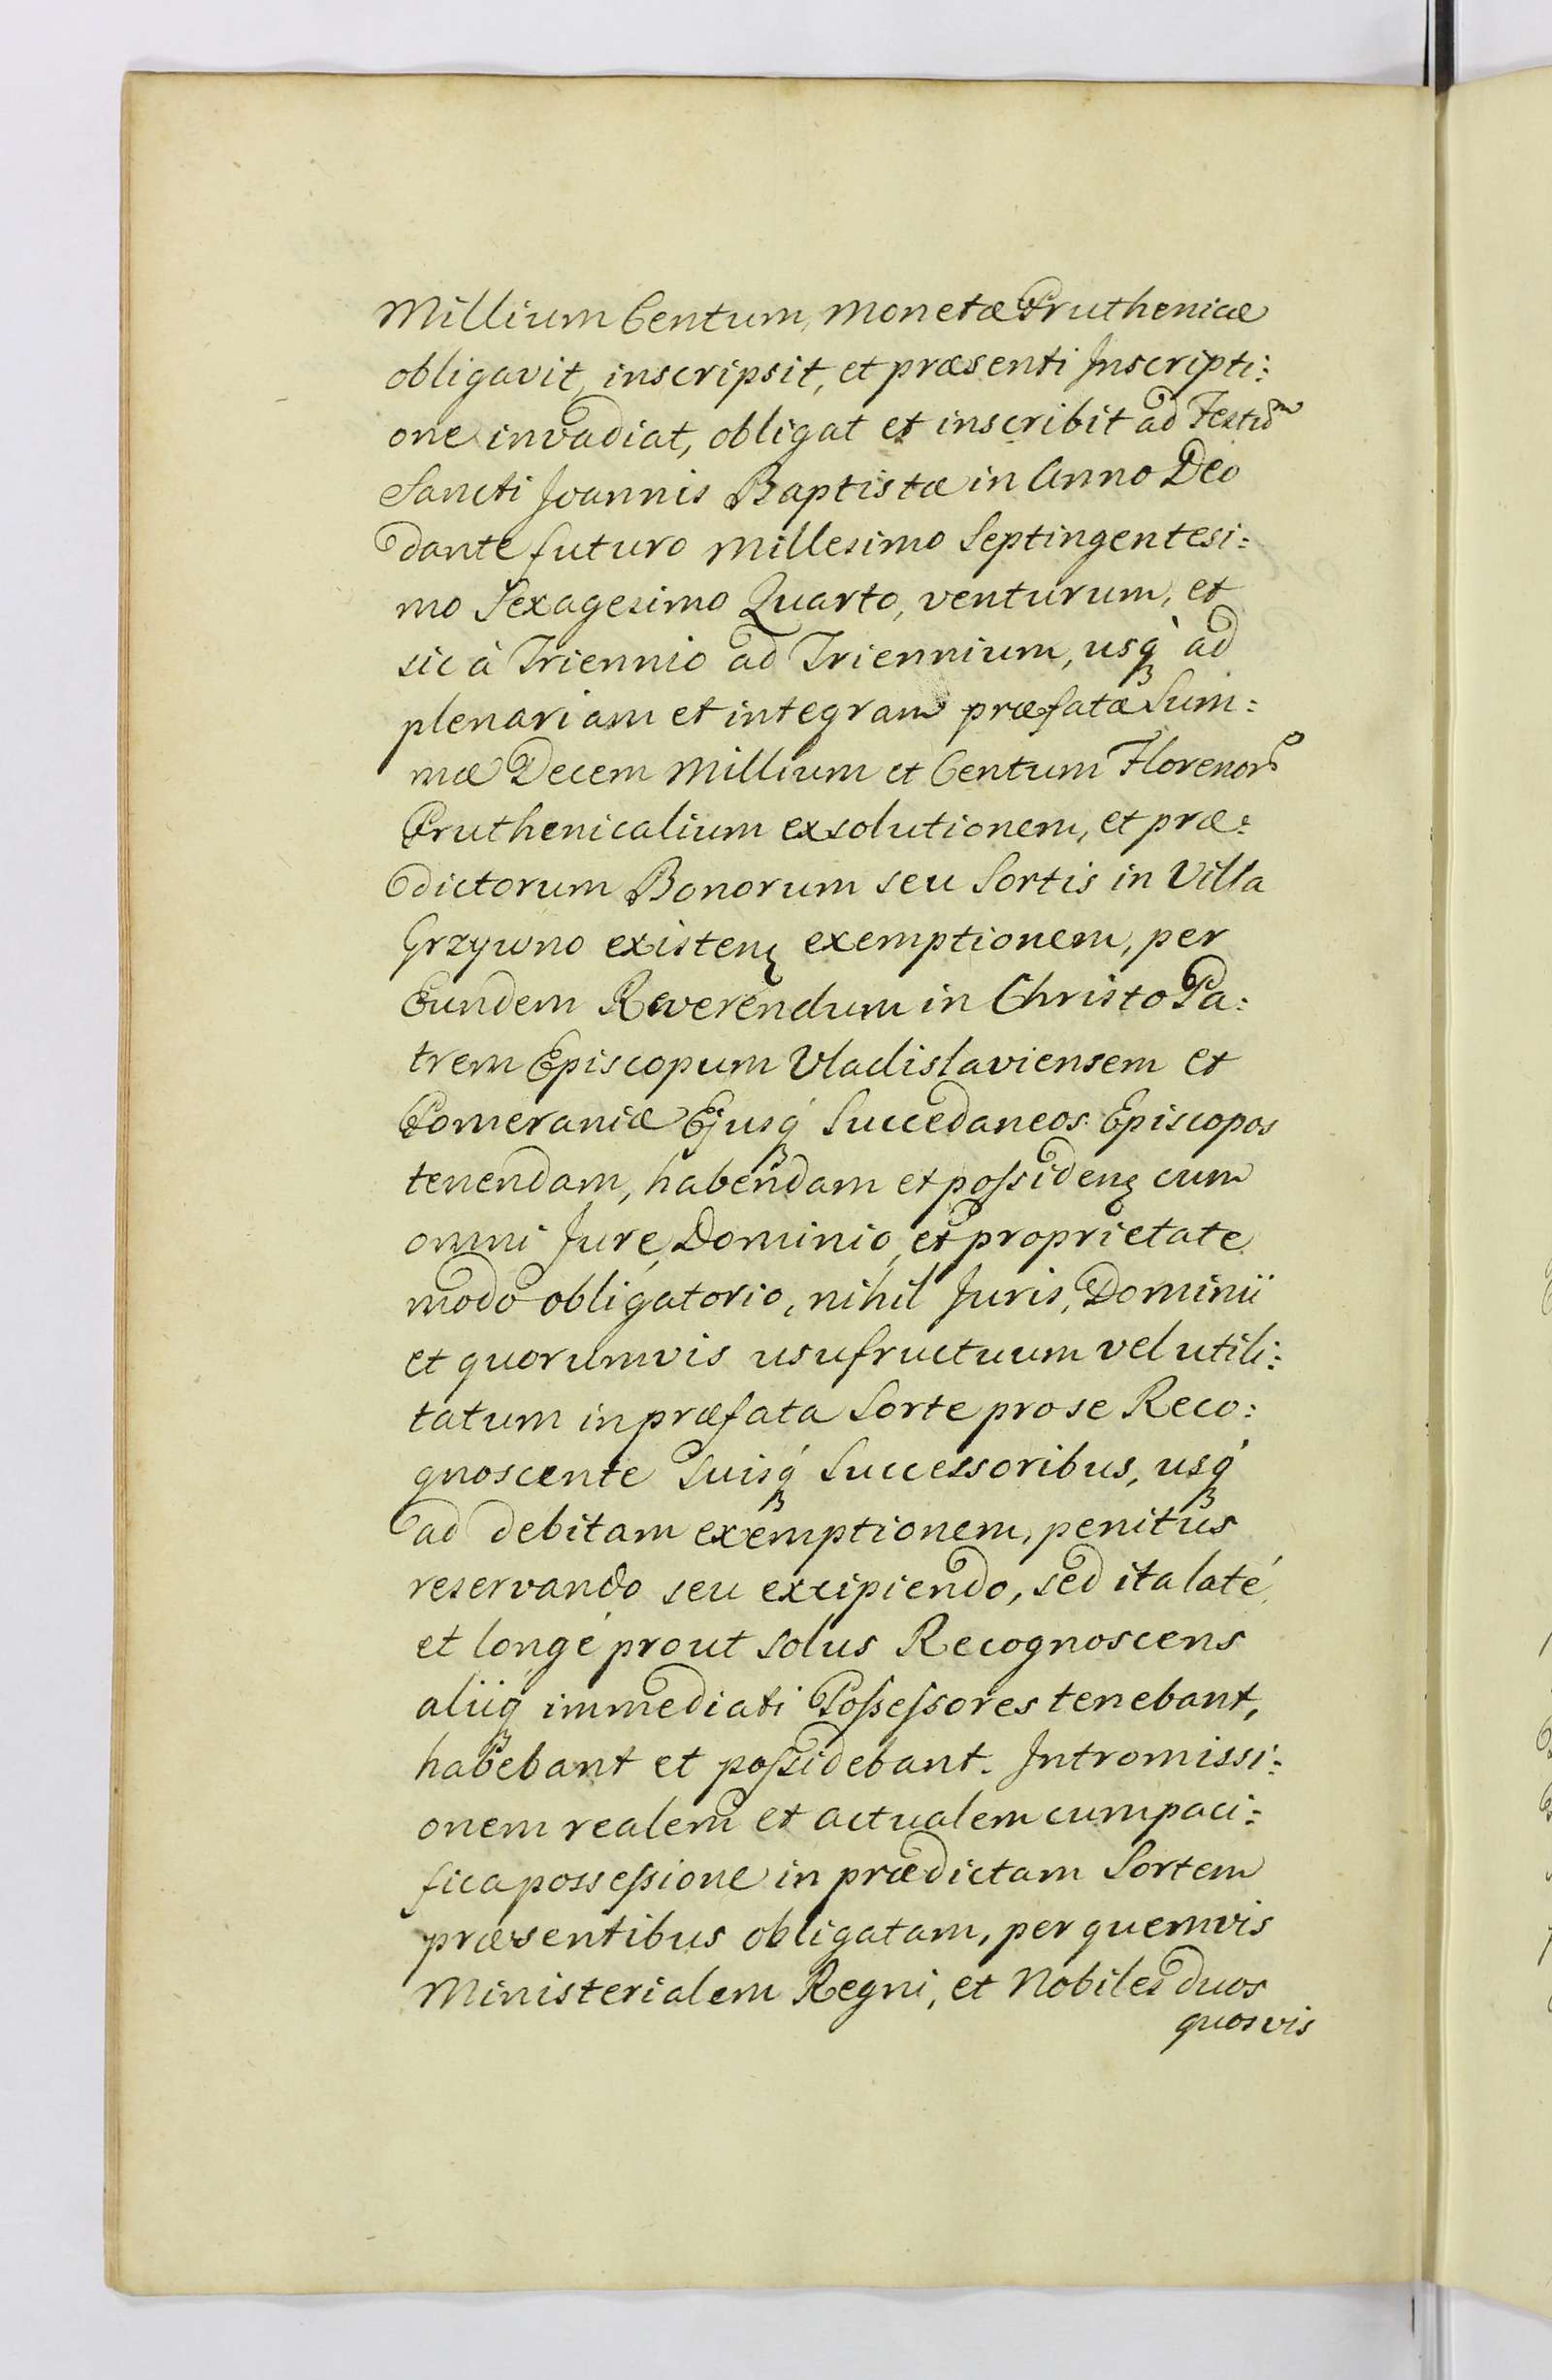 Millium Centum, Monetæ Pruthenicæ
obligavit, inscripsit, et præsenti Inscripti:
one invadiat, obligat et inscribit ad Festũ
Sancti Joannis Baptistæ in Anno Deo
dante futuro Millesimo Septingentesi:
mo Sexagesimo Quarto, venturum, et
sic à Triennio ad Triennium, usq̀ ad
plenariam et integram præfatæ Sum:
mæ Decem Millium et Centum Florenorũ
Pruthenicalium exsolutionem, et præ:
dictorum Bonorum seu Sortis in Villa
Grzywno existenꝫ exemptionem, per
Eundem Reverendum in Christo Pa:
trem Episcopum Vladislaviensem et
Pomeraniæ Ejusq́ Succedaneos Episcopos
tenendam, habendam et poſsidenꝫ cum
omni Jure, Dominio, et proprietate
modo obligatorio, nihil Juris, Dominii
et quorumvis usufructuum vel utili:
tatum in præfata Sorte pro se Reco:
gnoscente Suisq́ Successoribus, usq́
ad debitam exemptionem, penitus
reservando seu excipiendo, sed ita laté
et longé prout solus Recognoscens
aliiq́ immediati Poſseſsores tenebant,
habebant et poſsidebant. Intromissi:
onem realem et actualem cum paci:
fica posseſsione in prædictam Sortem
præsentibus obligatam, per quemvis
Ministerialem Regni, et Nobiles duos
quosvis